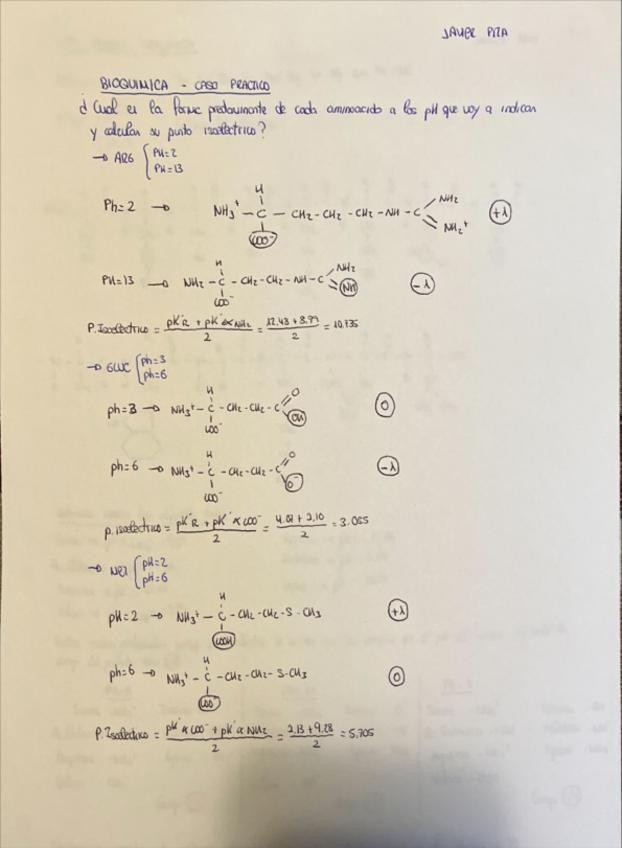 JAVIER PITA
BIOQUIMICA - CASO PRACTICO
¿Cual es la forma predominante de cada aminoacido a los pH que voy a indicar
y calcular su punto isoelectrico?
→ ARG { PH=2
PH=13
Ph=2 → NH3⁺ - C - CH2 - CH2 - CH2 - NH - C NH2 (+1)
H
COO⁻
NH2⁺
PH=13 → NH2 - C - CH2 - CH2 - NH - C NH2 (-1)
H
COO⁻
NH
P. Isoelectrico = pK'R + pK'αNH2 / 2 = 12.48 + 8.99 / 2 = 10.735
→ GLUC { ph=3
ph=6
ph=3 → NH3⁺ - C - CH2 - CH2 - C O (0)
H
COO⁻
OH
ph=6 → NH3⁺ - C - CH2 - CH2 - C O (-1)
H
COO⁻
O⁻
p. isoelectrico = pK'R + pK'αCOO⁻ / 2 = 4.07 + 2.10 / 2 = 3.085
→ MET { pH=2
pH=6
pH=2 → NH3⁺ - C - CH2 - CH2 - S - CH3 (+1)
H
COOH
ph=6 → NH3⁺ - C - CH2 - CH2 - S - CH3 (0)
H
COO⁻
P. Isoelectrico = pK'αCOO⁻ + pK'αNH2 / 2 = 2.13 + 9.28 / 2 = 5.705